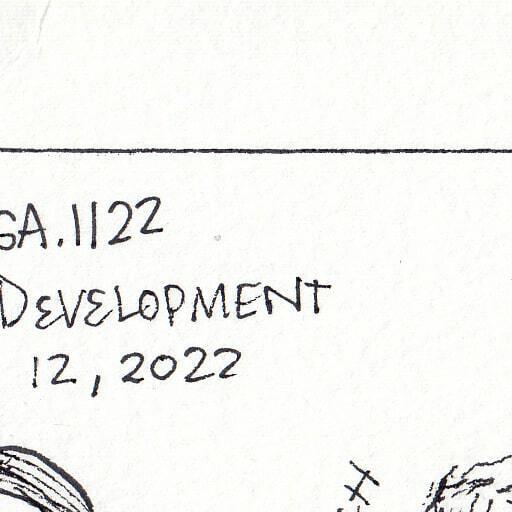 GA.1122
DEVELOPMENT
12, 2022